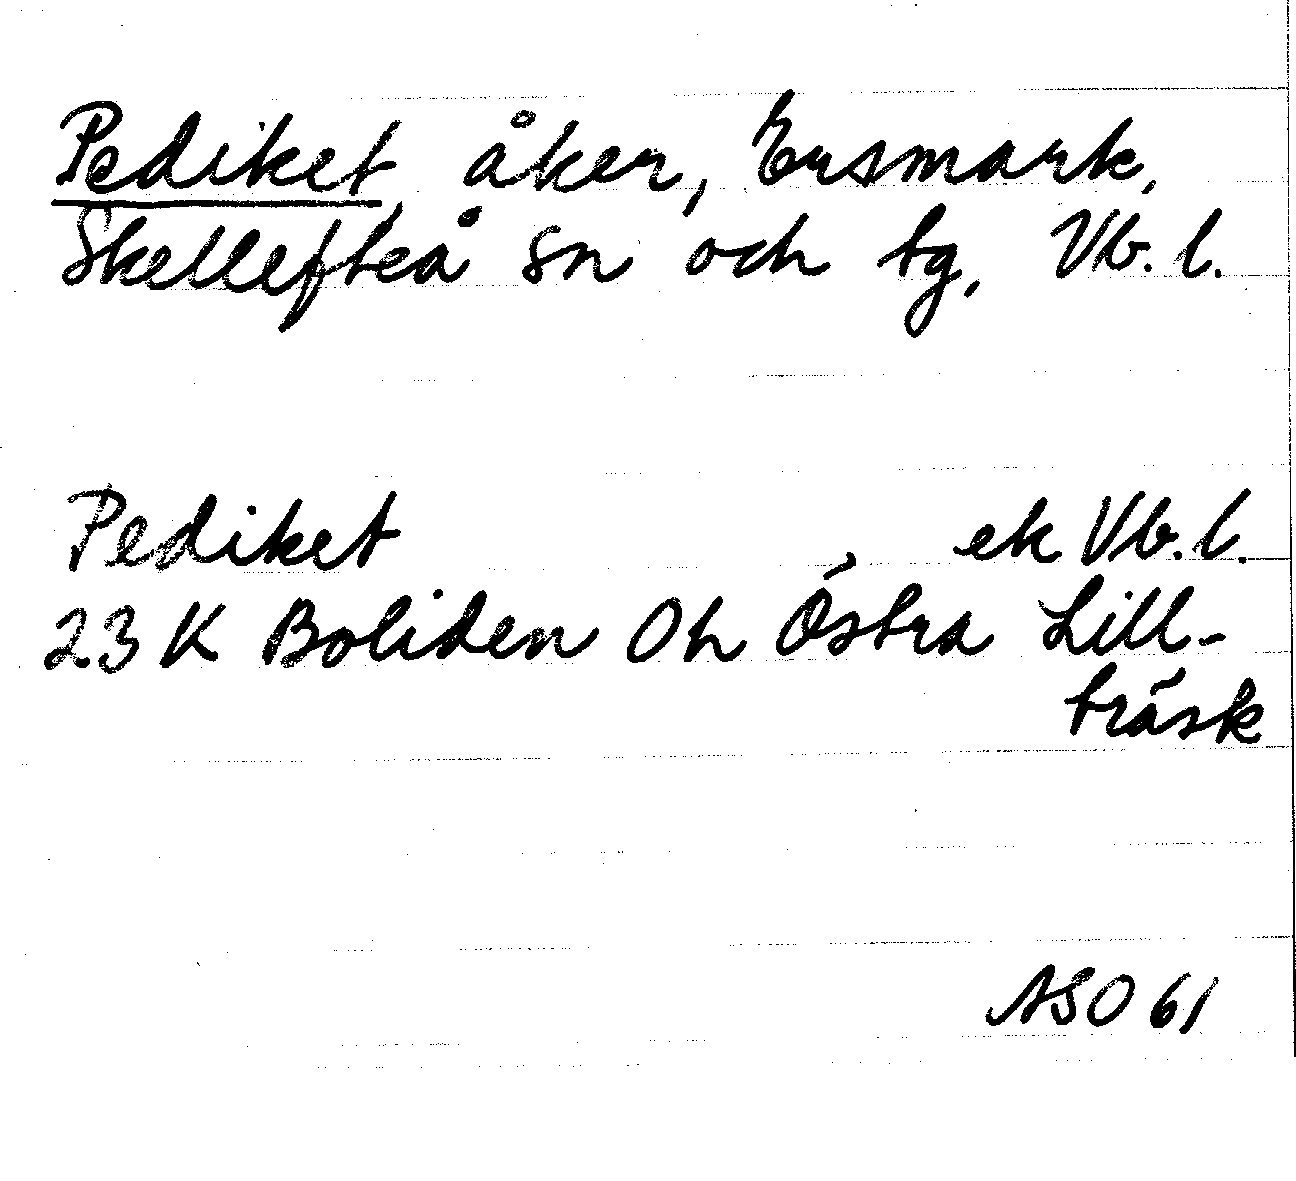 Pediket åker, Ersmark,
Skellefteå sn och tg, Vb. l.
Pediket ek Vb. l.
23 K Boliden Oh Östra Lill-
träsk
ASO 61